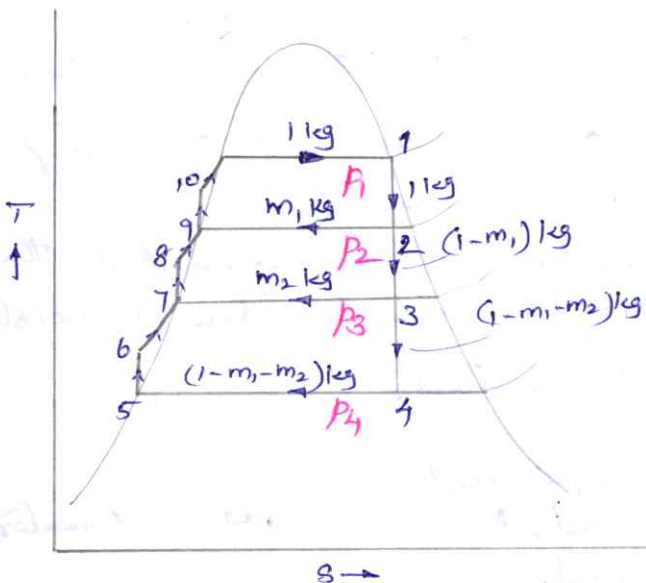 1 kg 1
10 P1 1 kg
T m1 kg
9 P2 2 (1-m1) kg
8 m2 kg
7 P3 3 (1-m1-m2) kg
6 (1-m1-m2) kg
5 P4 4
S